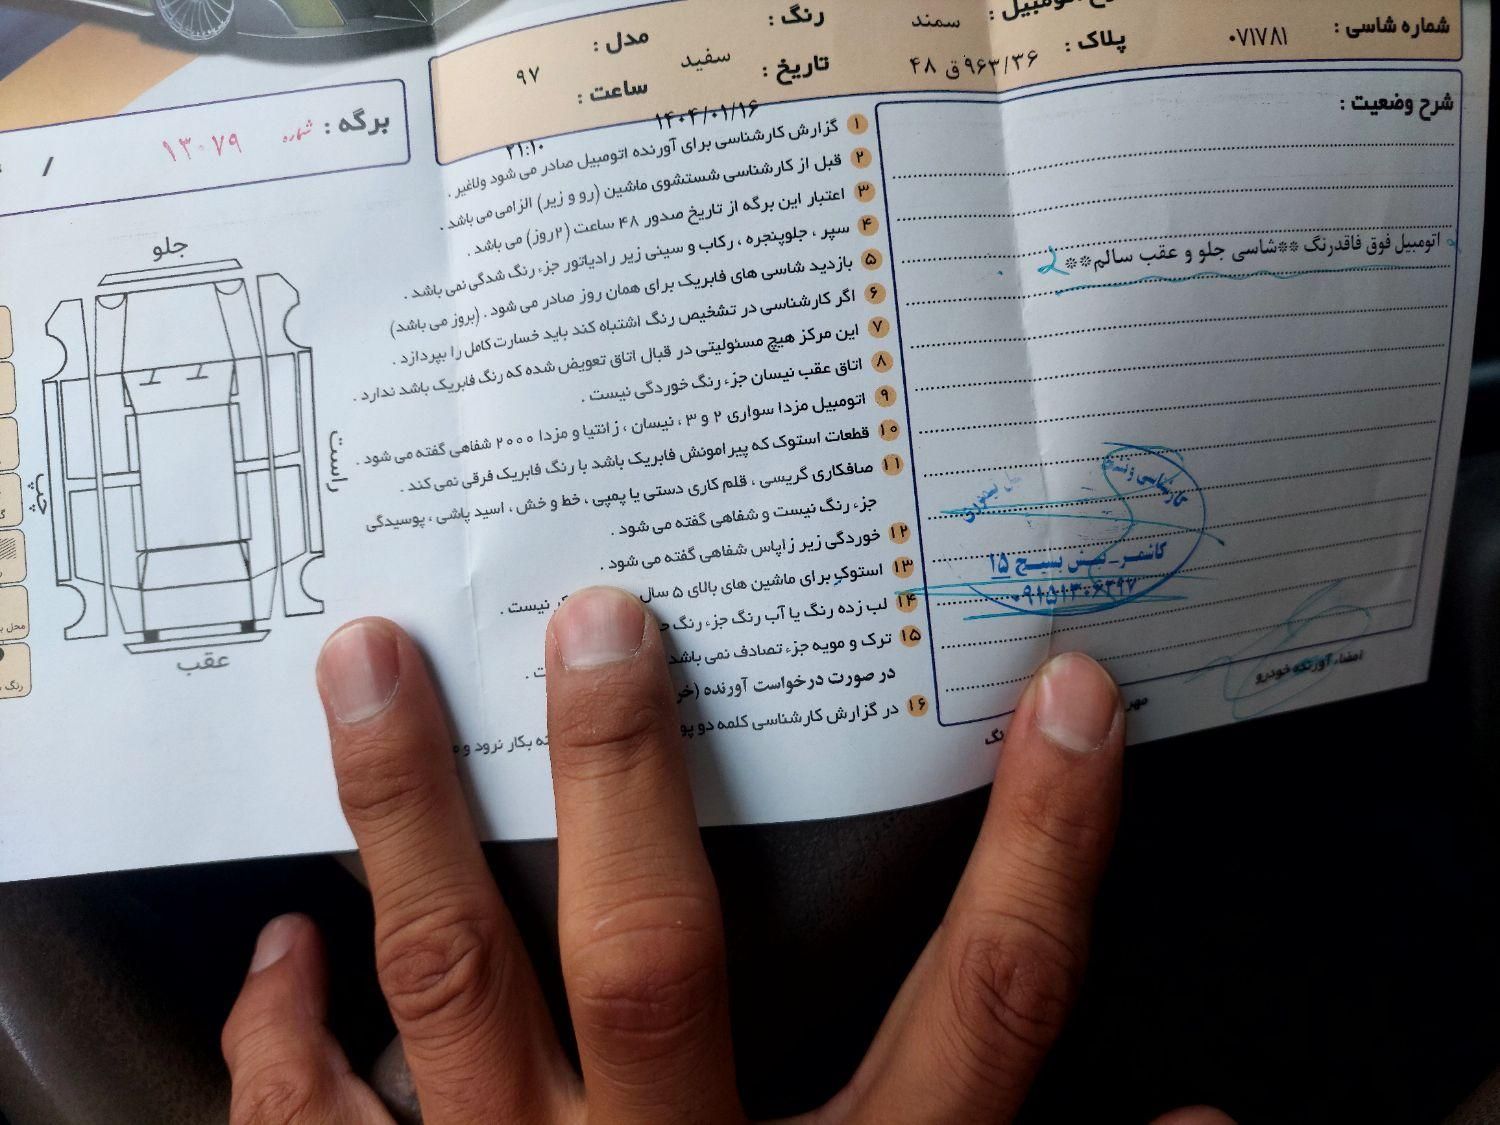 شماره شاسی : ۰۷۱۷۸۱
اتومبیل : سمند
پلاک : ۹۶۳/۳۶ ق ۴۸
رنگ : سفید
تاریخ : ۱۴۰۴/۰۱/۱۶
مدل : ۹۷
ساعت : ۲۱:۱۰
برگه : شماره ۱۳۰۷۹
شرح وضعیت :
اتومبیل فوق فاقدرنگ **شاسی جلو و عقب سالم**
کاشمر_نبش بسیج ۱۵
امضاء آورنده خودرو
مهر
۱ گزارش کارشناسی برای آورنده اتومبیل صادر می شود ولاغیر .
۲ قبل از کارشناسی شستشوی ماشین (رو و زیر) الزامی می باشد .
۳ اعتبار این برگه از تاریخ صدور ۴۸ ساعت (۲روز) می باشد .
۴ سپر ، جلوپنجره ، رکاب و سینی زیر رادیاتور جزء رنگ شدگی نمی باشد .
۵ بازدید شاسی های فابریک برای همان روز صادر می شود . (بروز می باشد)
۶ اگر کارشناسی در تشخیص رنگ اشتباه کند باید خسارت کامل را بپردازد .
۷ این مرکز هیچ مسئولیتی در قبال اتاق تعویض شده که رنگ فابریک باشد ندارد .
۸ اتاق عقب نیسان جزء رنگ خوردگی نیست .
۹ اتومبیل مزدا سواری ۲ و ۳ ، نیسان ، زانتیا و مزدا ۲۰۰۰ شفاهی گفته می شود .
۱۰ قطعات استوک که پیرامونش فابریک باشد با رنگ فابریک فرقی نمی کند .
۱۱ صافکاری گریسی ، قلم کاری دستی یا پمپی ، خط و خش ، اسید پاشی ، پوسیدگی
جزء رنگ نیست و شفاهی گفته می شود .
۱۲ خوردگی زیر زاپاس شفاهی گفته می شود .
۱۳ استوک برای ماشین های بالای ۵ سال نیست .
۱۴ لب زده رنگ یا آب رنگ جزء رنگ
۱۵ ترک و مویه جزء تصادف نمی باشد
در صورت درخواست آورنده
۱۶ در گزارش کارشناسی کلمه دو بکار نرود و
جلو
راست
چپ
عقب